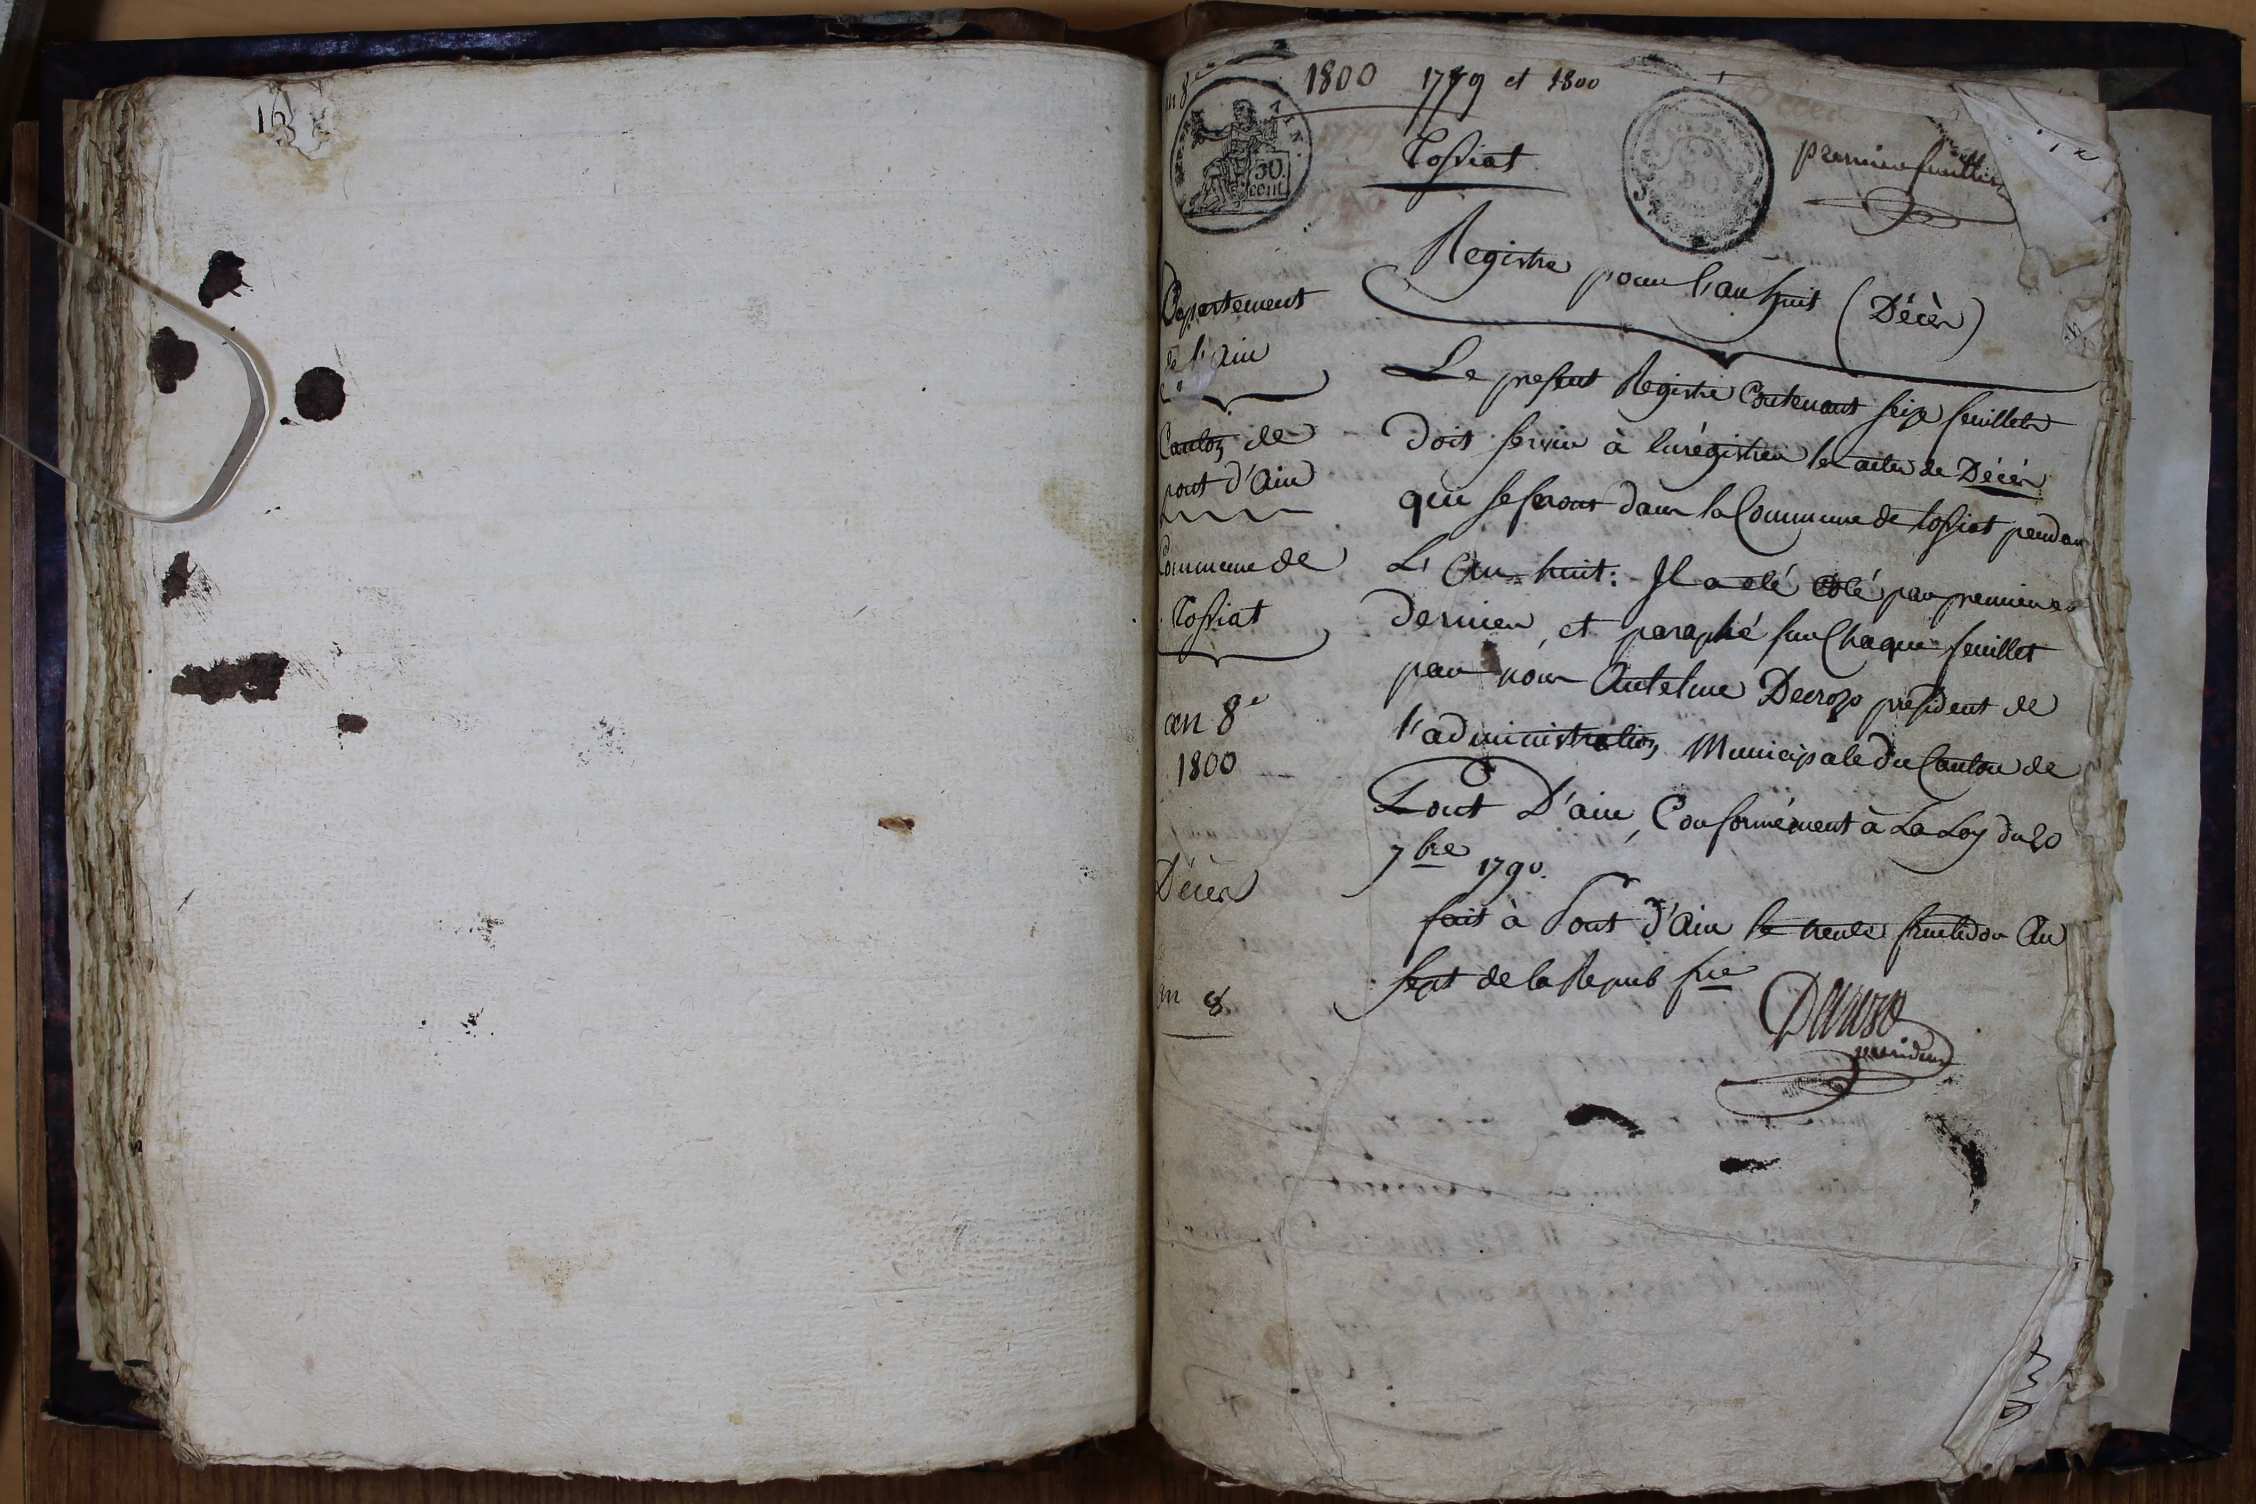 16
an 8
1800 1799 et 1800
REP. FRA.
50.
cent.
Tossiat
premier feuillet
Registre pour l'an huit (Décès)
Departement
de l'Ain
Canton de
pont d'Ain
Commune de
Tossiat
an 8e
1800
Décès
an 8
Le present Registre Contenant seize feuillets
doit servir à Enrégistrer les actes de Décès
qui se feront dans la Commune de tossiat pendant
L'An huit: Il a eté coté par premier et
dernier, et paraphé sur Chaque feuillet
par nous Antelme Decroso president de
l'administration Municipale du Canton de
Pont D'ain, Conformément à La Loy du 20
7bre 1790.
fait à Pont d'Ain le fructidor An
sept de la Repub frse
Decroso
president